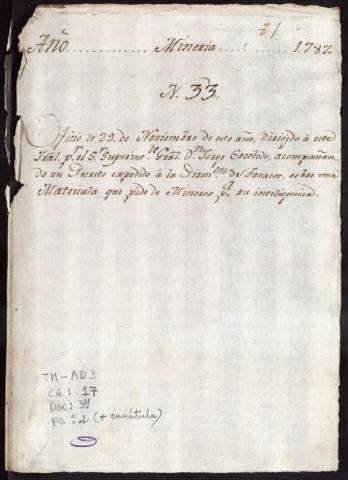 81
Año ............ Mineria ............ 1787.
N. 33.
Oficio de 29. de Noviembre de este año, dirijido à este
Tral. pr. el Sr. Superinte. Gral. Dn. Jorge Escobedo, acompañan-
do un Decreto expedido à la Direcon. de Tavacos, sobre una
Matricula que pide de Mineros pa. su inteligencia.
TM-AD3
CA: 17
DOC: 34
FS: 2 (+ carátula)